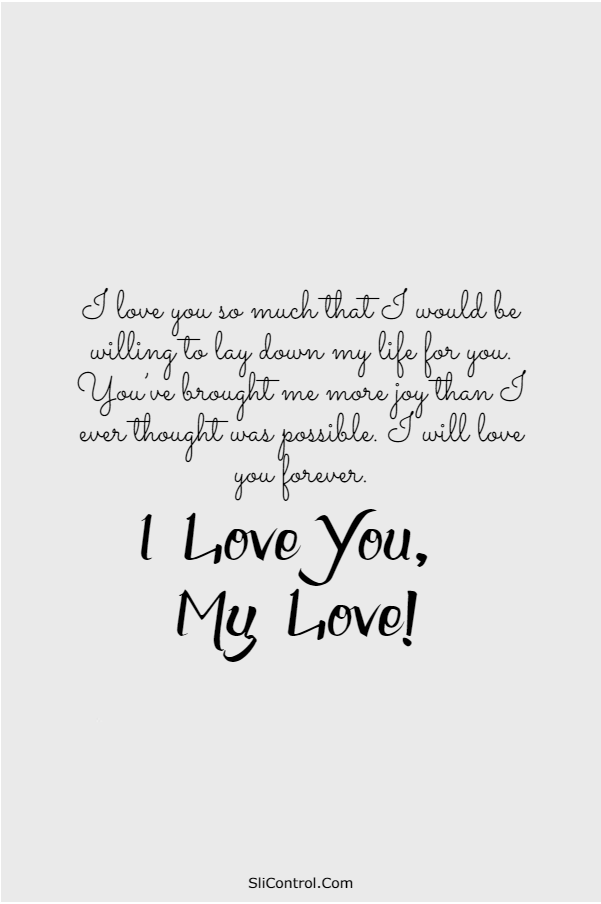 I love you so much that I would be
willing to lay down my life for you.
You've brought me more joy than I
ever thought was possible. I will love
you forever.
I Love You,
My Love!
SliControl.Com